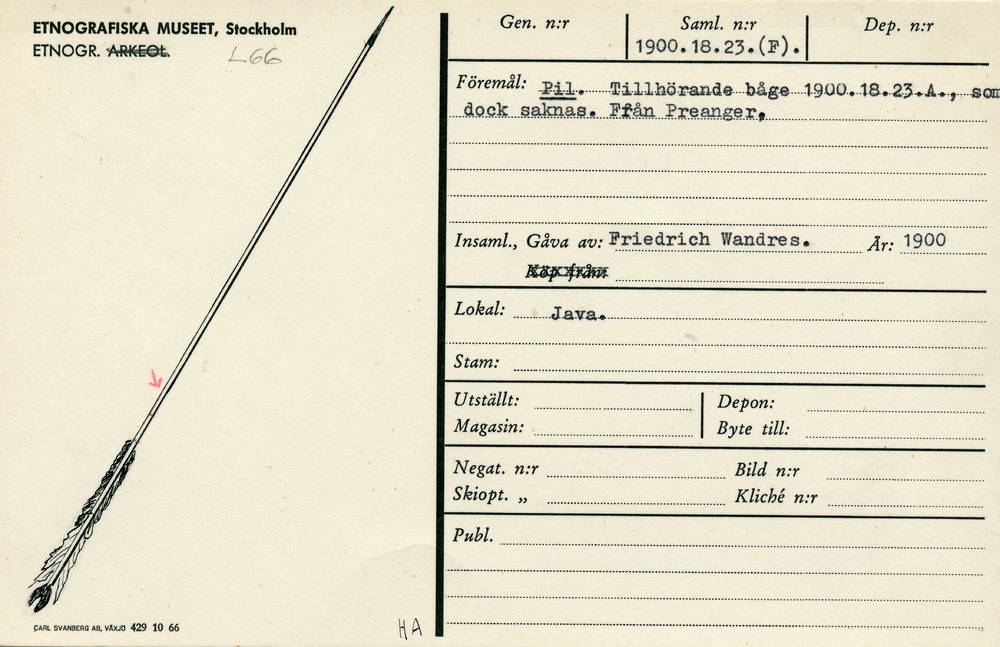 ETNOGRAFISKA MUSEET, Stockholm
ETNOGR. ARKEOL.
L66
CARL SVANBERG AB, VÄXJÖ 429 10 66
HA
Gen. n:r
Saml. n:r
1900.18.23.(F).
Dep. n:r
Föremål: Pil. Tillhörande båge 1900.18.23.A., som
dock saknas. Från Preanger,
Insaml., Gåva av: Friedrich Wandres. År: 1900
Köp från:
Lokal: Java.
Stam:
Utställt: Depon:
Magasin: Byte till:
Negat. n:r Bild n:r
Skiopt. „ Kliché n:r
Publ.